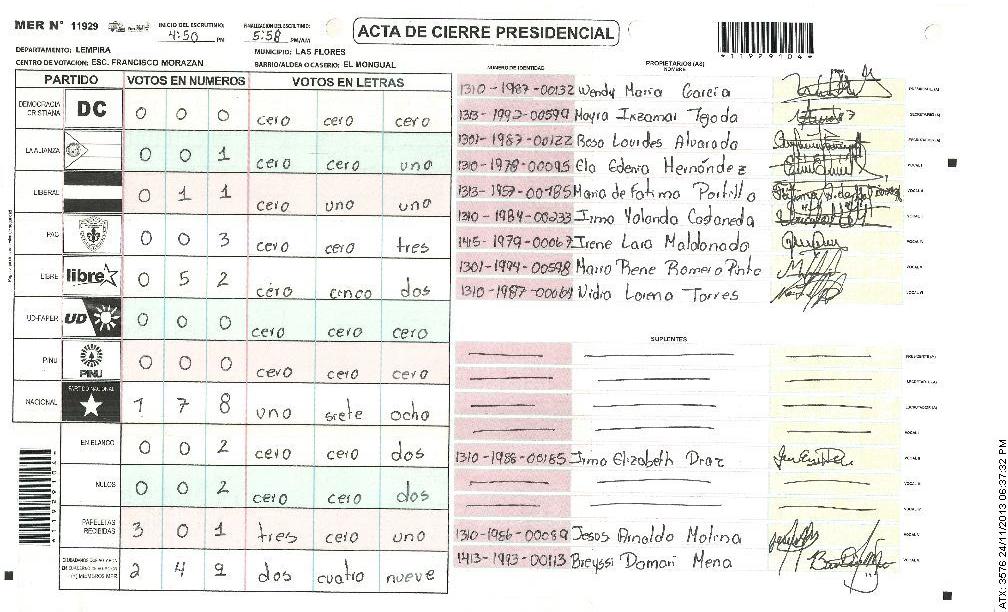 MER N° 11929
INICIO DEL ESCRUTINIO:
4:50 PM
FINALIZACION DEL ESCRUTINIO:
5:58 PM/AM
ACTA DE CIERRE PRESIDENCIAL
*11929104*
DEPARTAMENTO: LEMPIRA
MUNICIPIO: LAS FLORES
CENTRO DE VOTACION: ESC. FRANCISCO MORAZAN
BARRIO/ALDEA O CASERIO: EL MONGUAL
PARTIDO VOTOS EN NUMEROS VOTOS EN LETRAS
DEMOCRACIA CRISTIANA DC 0 0 0 cero cero cero
LA ALIANZA 0 0 1 cero cero uno
LIBERAL 0 1 1 cero uno uno
PAC 0 0 3 cero cero tres
LIBRE libre 0 5 2 cero cinco dos
UD-FAPER UD 0 0 0 cero cero cero
PINU PINU 0 0 0 cero cero cero
NACIONAL PARTIDO NACIONAL 1 7 8 uno siete ocho
EN BLANCO 0 0 2 cero cero dos
NULOS 0 0 2 cero cero dos
PAPELETAS RECIBIDAS 3 0 1 tres cero uno
(*) MIEMBROS MER 2 4 9 dos cuatro nueve
*11929104*
NUMERO DE IDENTIDAD
PROPIETARIOS (AS)
NOMBRE
1310-1987-00132 Wendy Maria Garcia PRESIDENTE (A)
1313-1992-00599 Mayra Inzamar Tejada SECRETARIO (A)
1301-1987-00122 Rosa Lourdes Alvarado ESCRUTADOR (A)
1310-1978-00095 Ela Edenia Hernández VOCAL I
1313-1957-00185 Maria de Fatima Portillo VOCAL II
1310-1984-00233 Irma Yolanda Castaneda VOCAL III
1415-1979-00067 Irene Lara Maldonado VOCAL IV
1301-1994-00598 Mario Rene Romero Pinto VOCAL V
1310-1987-00064 Nidia Lorena Torres VOCAL VI
SUPLENTES
PRESIDENTE (A)
SECRETARIO (A)
ESCRUTADOR (A)
VOCAL I
1310-1986-00185 Irma Elizabeth Diaz VOCAL II
VOCAL III
VOCAL IV
1310-1986-00089 Jesus Arnaldo Molina VOCAL V
1413-1993-00113 Breyssi Damari Mena VOCAL VI
ATX: 3576 24/11/2013 06:37:32 PM